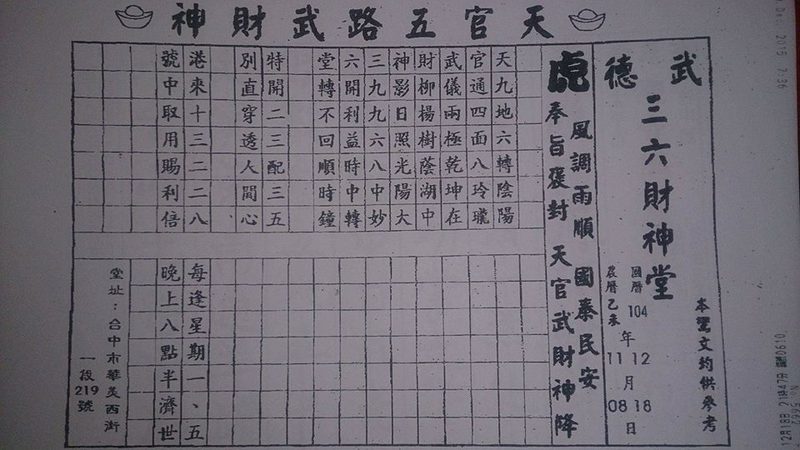 天官五路武財神
武德
三六財神堂
本聖文約供參考
國曆 104 年 12 月 18 日
農曆乙未 11 08
虎
風調雨順 國泰民安
奉旨褒封 天官武財神降
天九地六轉陰陽
官通四面八玲瓏
武儀兩極乾坤在
財柳楊樹蔭湖中
神影日照光陽大
三九九六八中妙
六開利益時中轉
堂轉不回順時鐘
特開二三配三五
別直穿透人間心
港來十三二二八
號中取用賜利倍
每逢星期一、五
晚上八點半濟世
堂址：台中市華美西街
一段219號
12月18日 21時47分